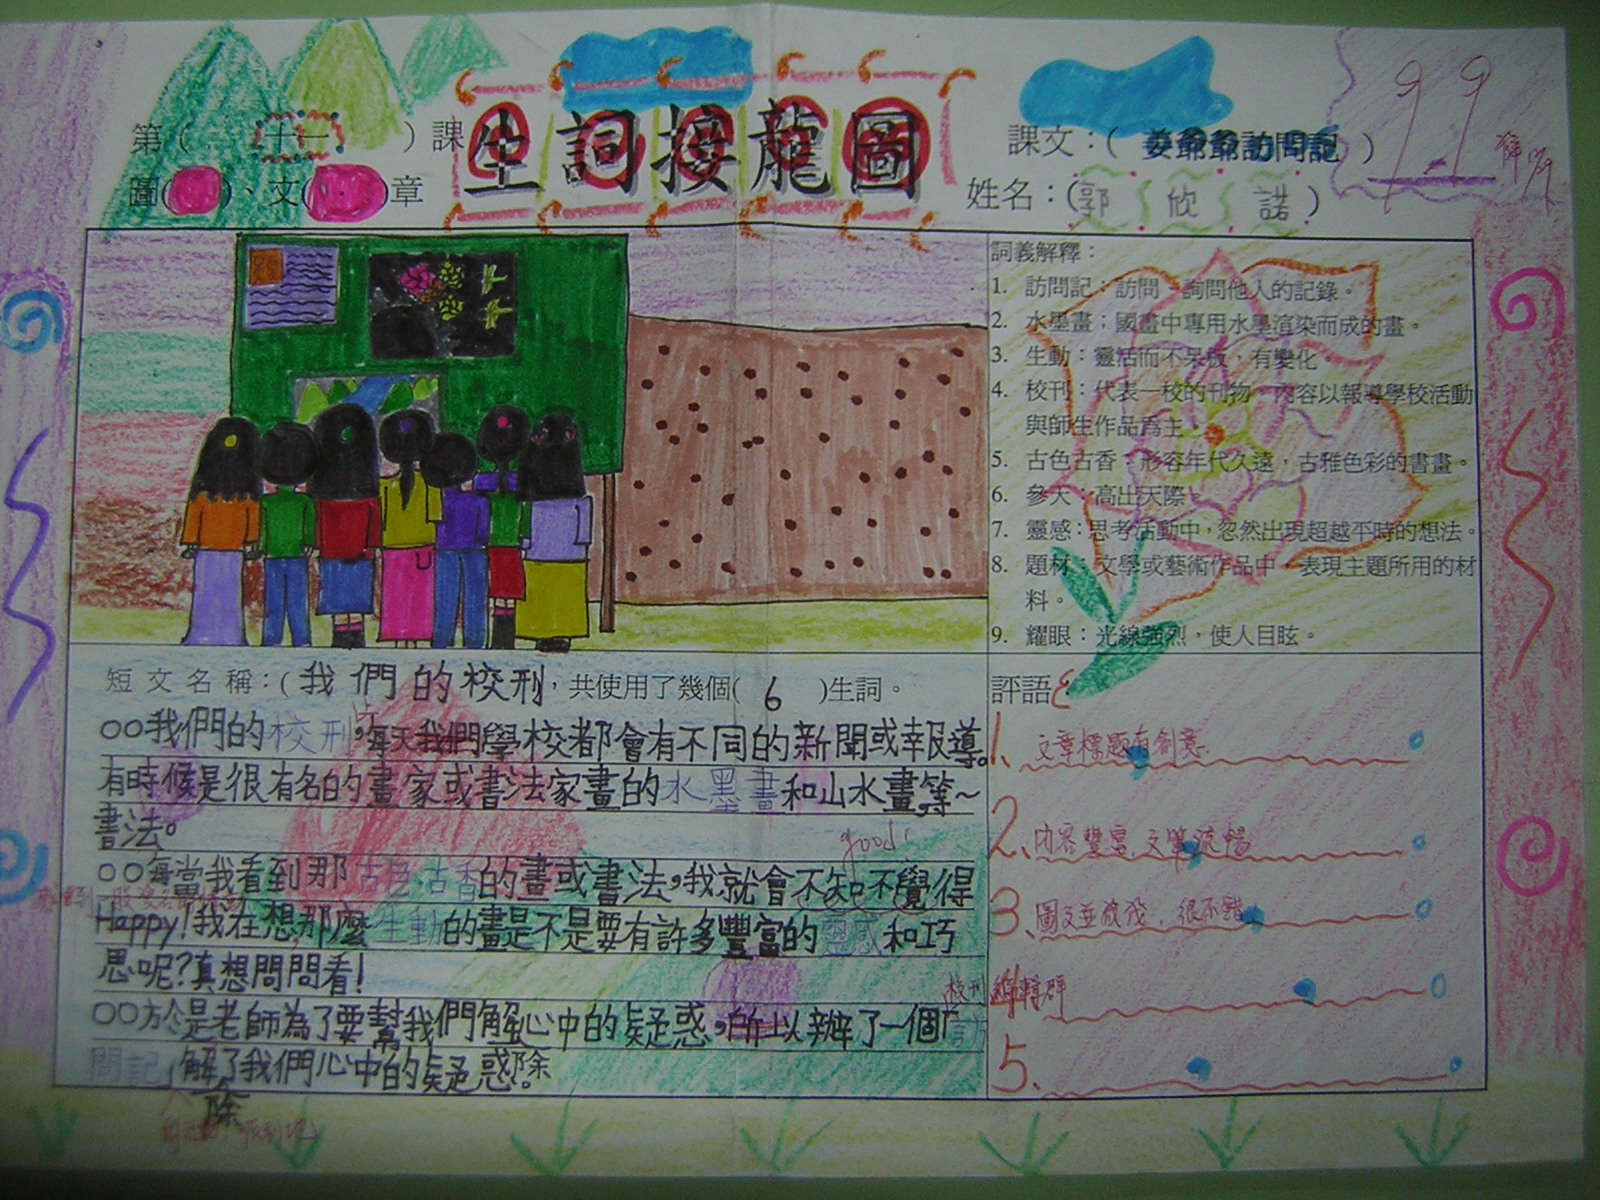 第( 十一 )課
生詞接龍圖
課文：( 姜爺爺訪問記 )
99
圖( )、文( )章
姓名：(郭欣諾)
詞義解釋：
1. 訪問記：訪問、詢問他人的記錄。
2. 水墨畫：國畫中專用水墨渲染而成的畫。
3. 生動：靈活而不呆板，有變化。
4. 校刊：代表一校的刊物，內容以報導學校活動
與師生作品為主。
5. 古色古香：形容年代久遠，古雅色彩的書畫。
6. 參天：高出天際。
7. 靈感：思考活動中，忽然出現超越平時的想法。
8. 題材：文學或藝術作品中，表現主題所用的材
料。
9. 耀眼：光線強烈，使人目眩。
短文名稱：(我們的校刑，共使用了幾個( 6 )生詞。
○○我們的校刑，每天我們學校都會有不同的新聞或報導。
有時候是很有名的畫家或書法家畫的水墨畫和山水畫，等~
書法。
good!
○○每當我看到那古色古香的畫或書法，我就會不知不覺得
Happy!我在想那麼生動的畫是不是要有許多豐富的靈感和巧
思呢?真想問問看!
○○於是老師為了要幫我們解心中的疑惑，所以辦了一個「訪
問記」解了我們心中的疑惑。除
除
評語：
1. 文章標題有創意
2. 內容豐富，文筆流暢
3. 圖文並茂，很不錯
校刊編輯群
5.